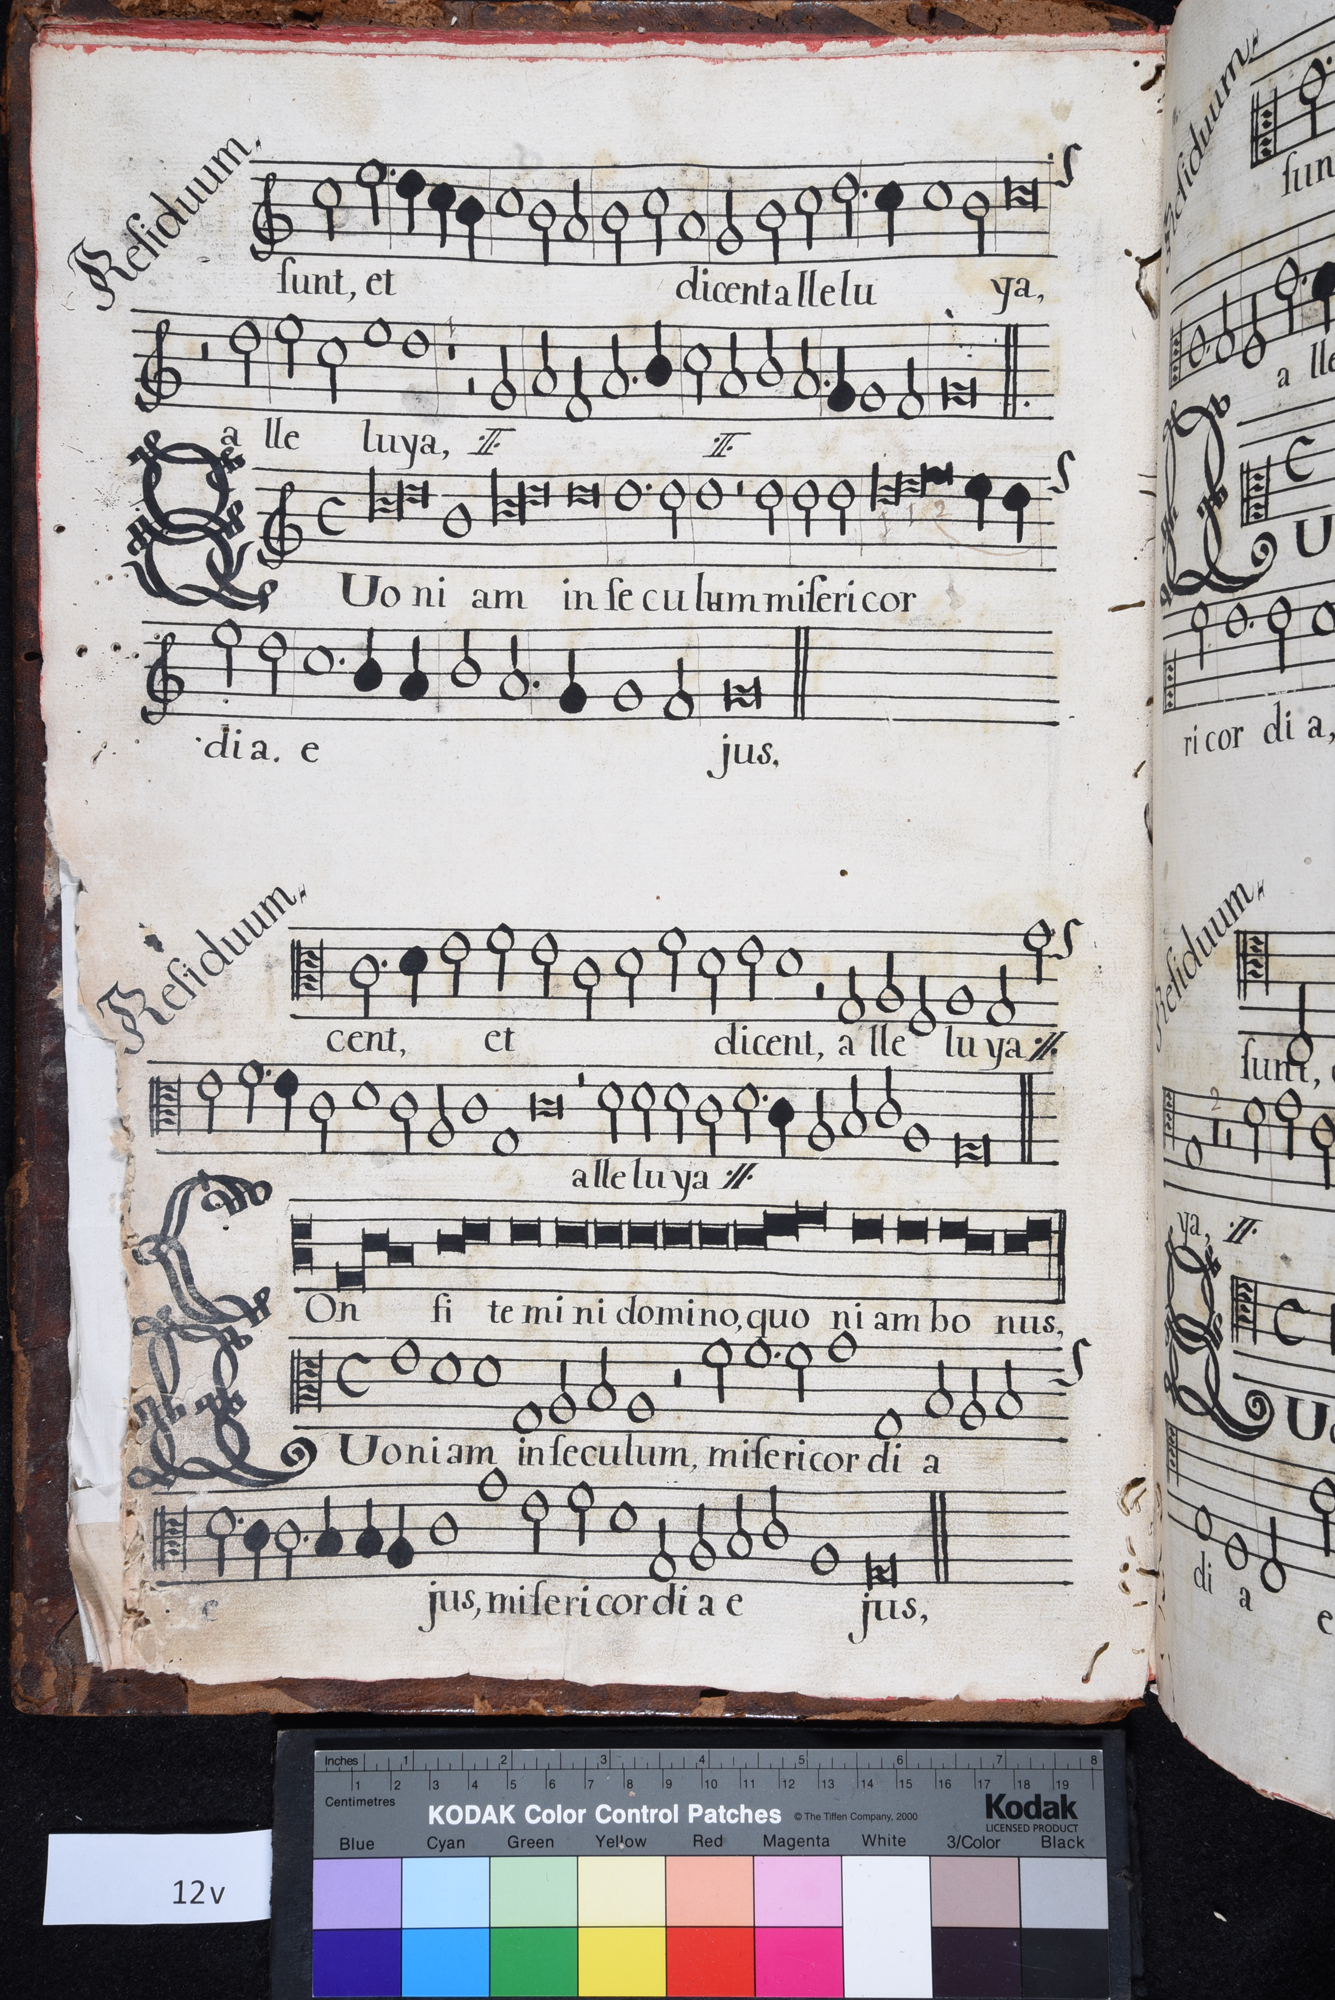 Residuum,
sunt, et dicent allelu ya,
a lle luya, :II: :II:
QUo ni am in se cu lum misericor
dia. e jus,
Residuum,
cent, et dicent, a lle lu ya :II:
alleluya :II:
COn fi te mi ni domino, quo ni am bo nus,
QUoniam in seculum, misericordi a
e jus, misericordi a e jus,
Residuum,
sun
a lle
U
ri cor di a,
Residuum,
sunt,
2
ya, :II:
U
di a e
Inches 1 2 3 4 5 6 7 8
Centimetres 1 2 3 4 5 6 7 8 9 10 11 12 13 14 15 16 17 18 19
KODAK Color Control Patches © The Tiffen Company, 2000 Kodak
LICENSED PRODUCT
Blue Cyan Green Yellow Red Magenta White 3/Color Black
12v